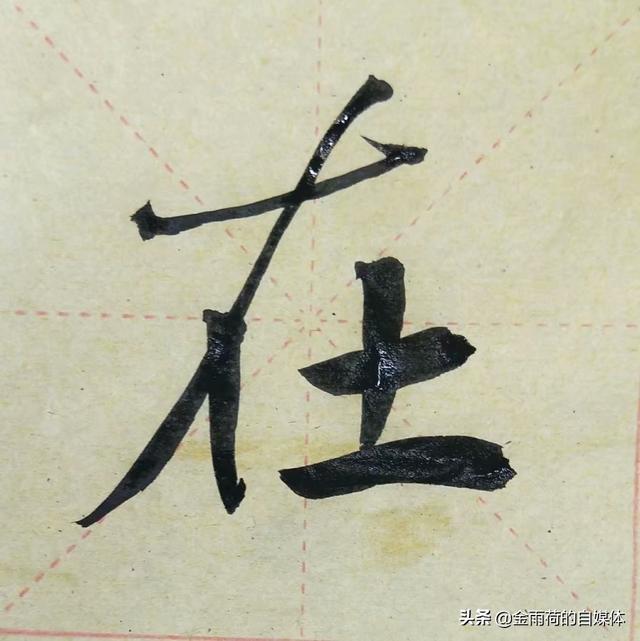 在
头条 @金雨荷的自媒体